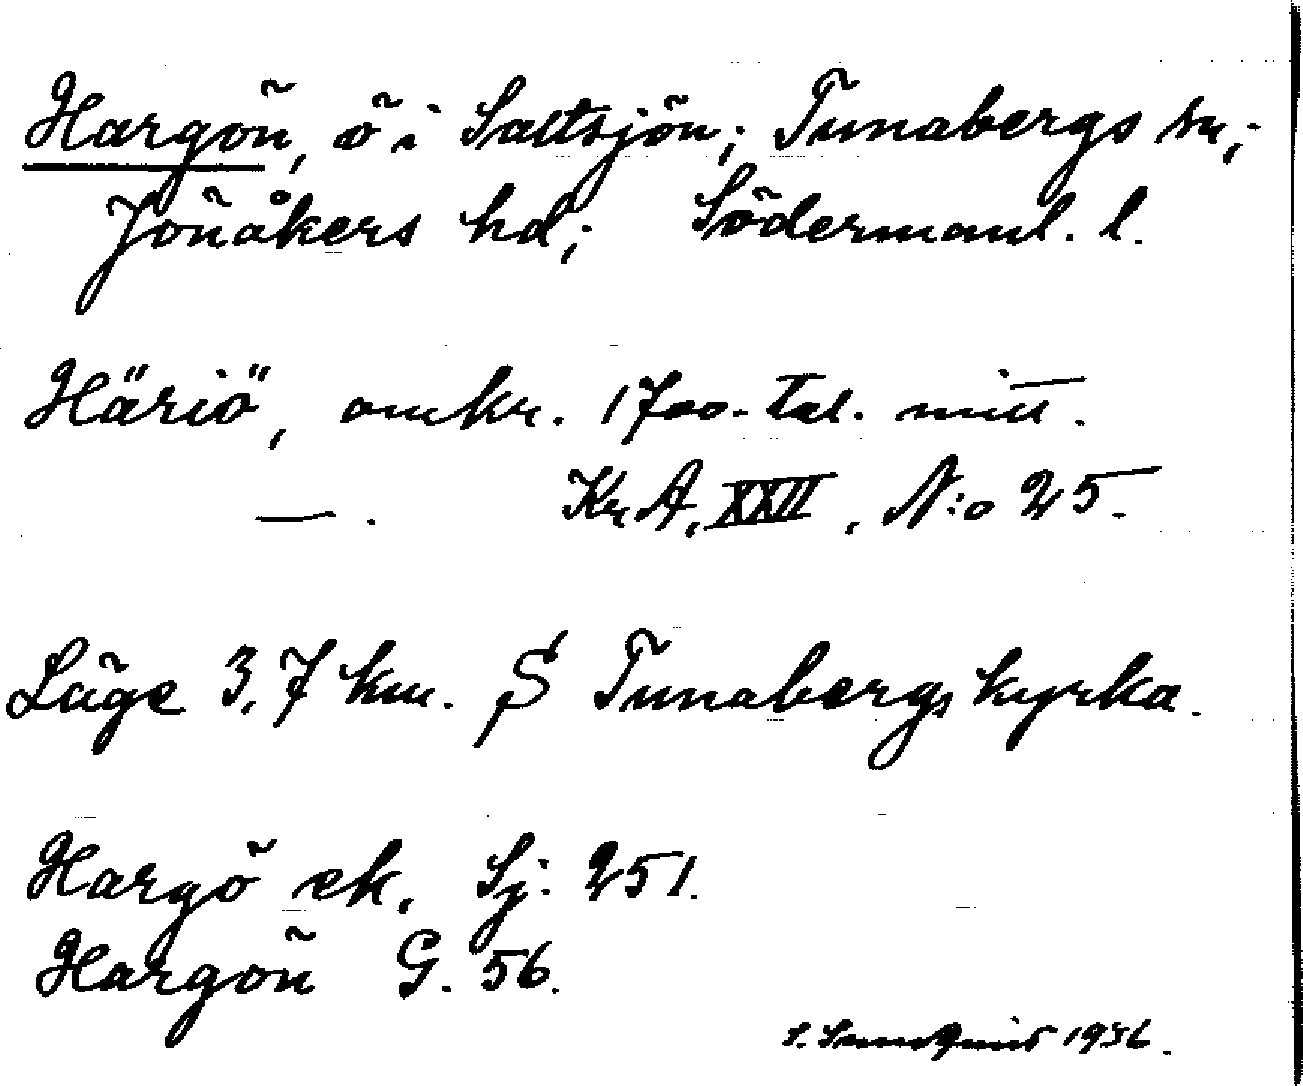 Hargön, ö i Saltsjön; Tunabergs sn;
Jönåkers hd; Södermanl. l.
Häriö, omkr. 1700-tal. mitt.
— . Kr.A, XXII, N:o 25.
Läge 3,7 km. S Tunabergs kyrka.
Hargö ek. Sj: 251.
Hargön G. 56.
S. Sundquist 1936.